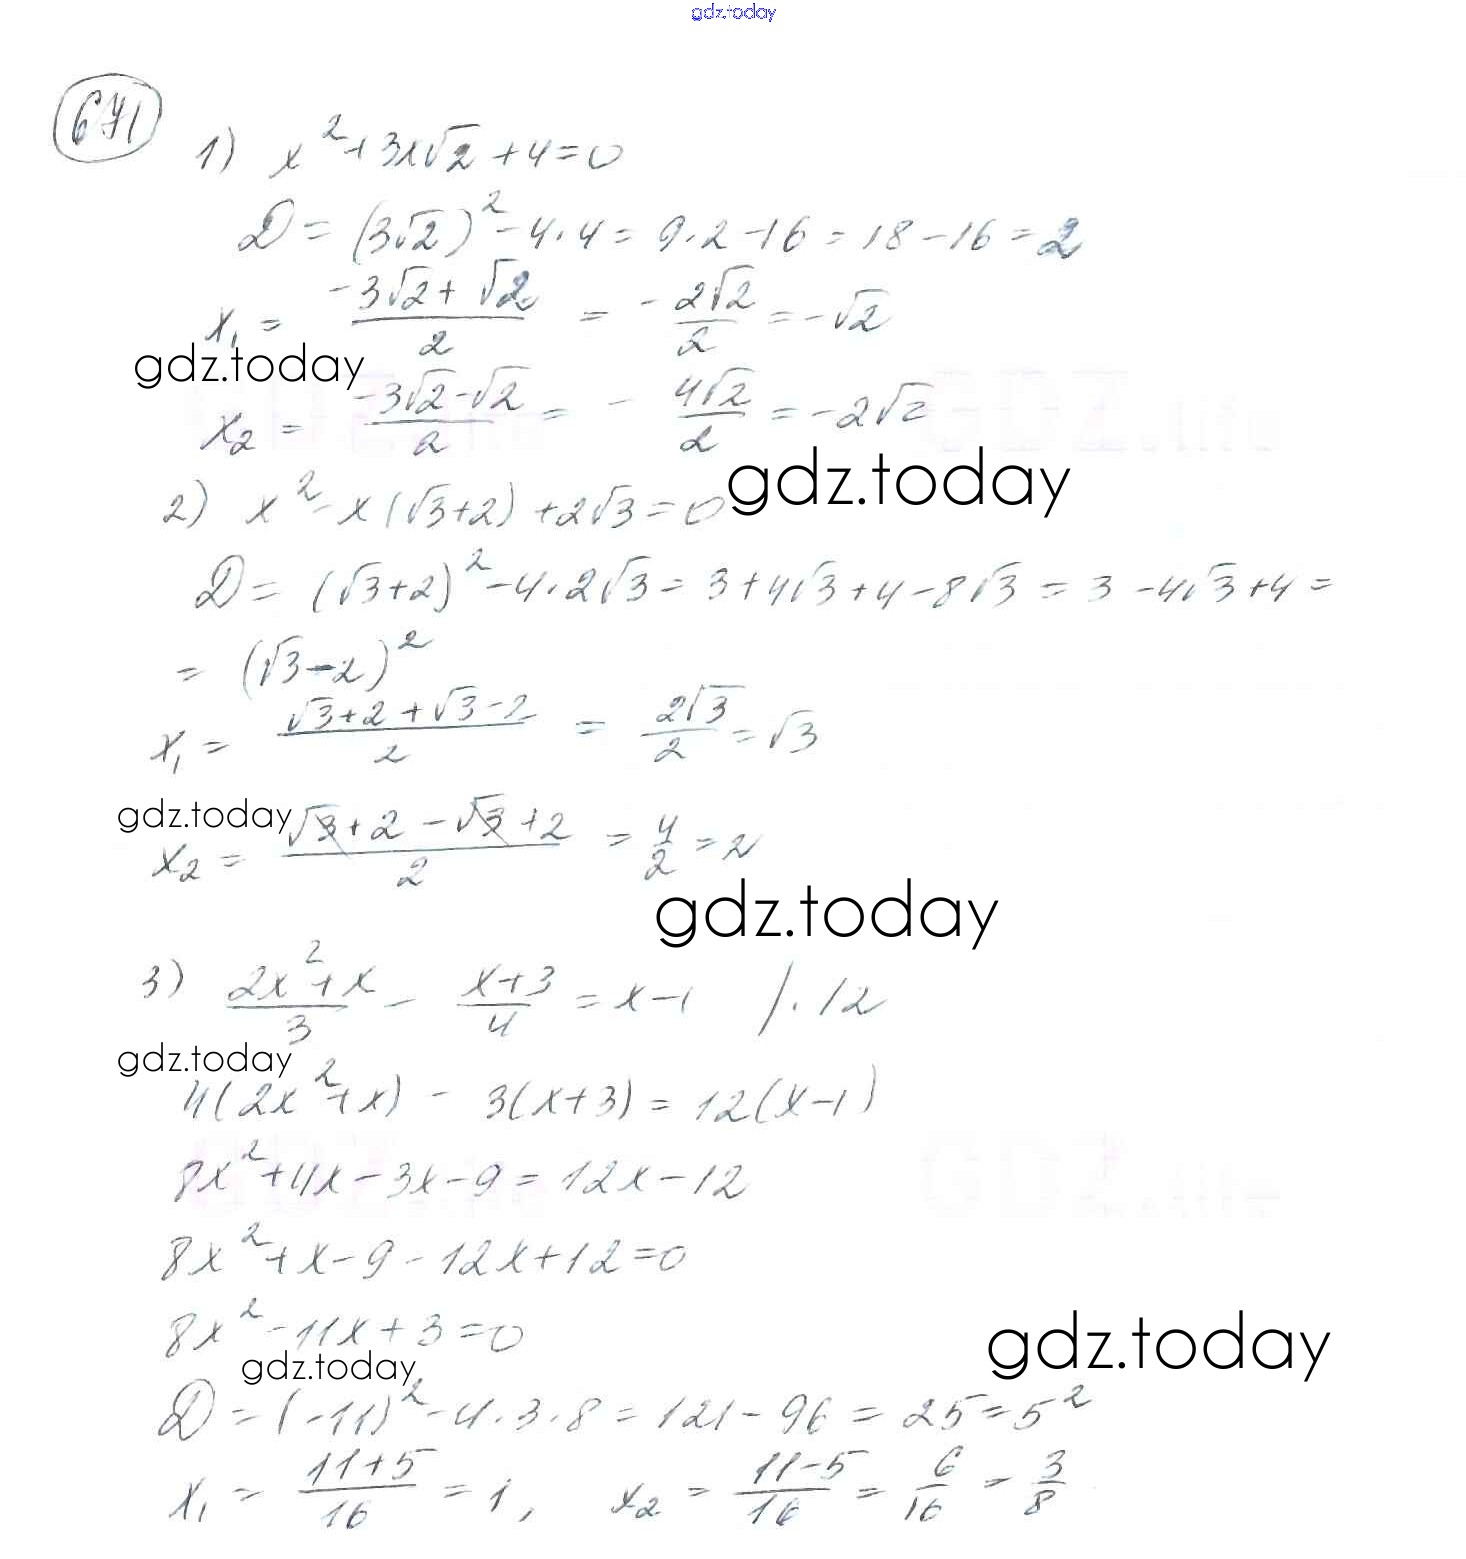 gdz.today
671
1) x² + 3x√2 + 4 = 0
D = (3√2)² - 4·4 = 9·2 - 16 = 18 - 16 = 2
x₁ = (-3√2 + √2)/2 = -2√2/2 = -√2
gdz.today
x₂ = (-3√2 - √2)/2 = -4√2/2 = -2√2
gdz.today
2) x² - x(√3+2) + 2√3 = 0
D = (√3+2)² - 4·2√3 = 3 + 4√3 + 4 - 8√3 = 3 - 4√3 + 4 =
= (√3-2)²
x₁ = (√3+2+√3-2)/2 = 2√3/2 = √3
gdz.today
x₂ = (√3+2-√3+2)/2 = 4/2 = 2
gdz.today
3) (2x²+x)/3 - (x+3)/4 = x-1 /·12
gdz.today
4(2x²+x) - 3(x+3) = 12(x-1)
8x²+4x-3x-9 = 12x-12
8x²+x-9-12x+12=0
8x²-11x+3=0
gdz.today
gdz.today
D = (-11)² - 4·3·8 = 121 - 96 = 25 = 5²
x₁ = (11+5)/16 = 1, x₂ = (11-5)/16 = 6/16 = 3/8